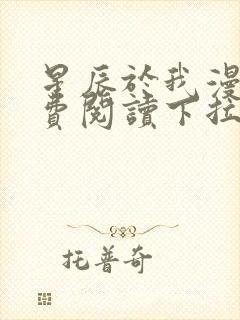 星辰於我漫
費閱讀下拉
托普奇